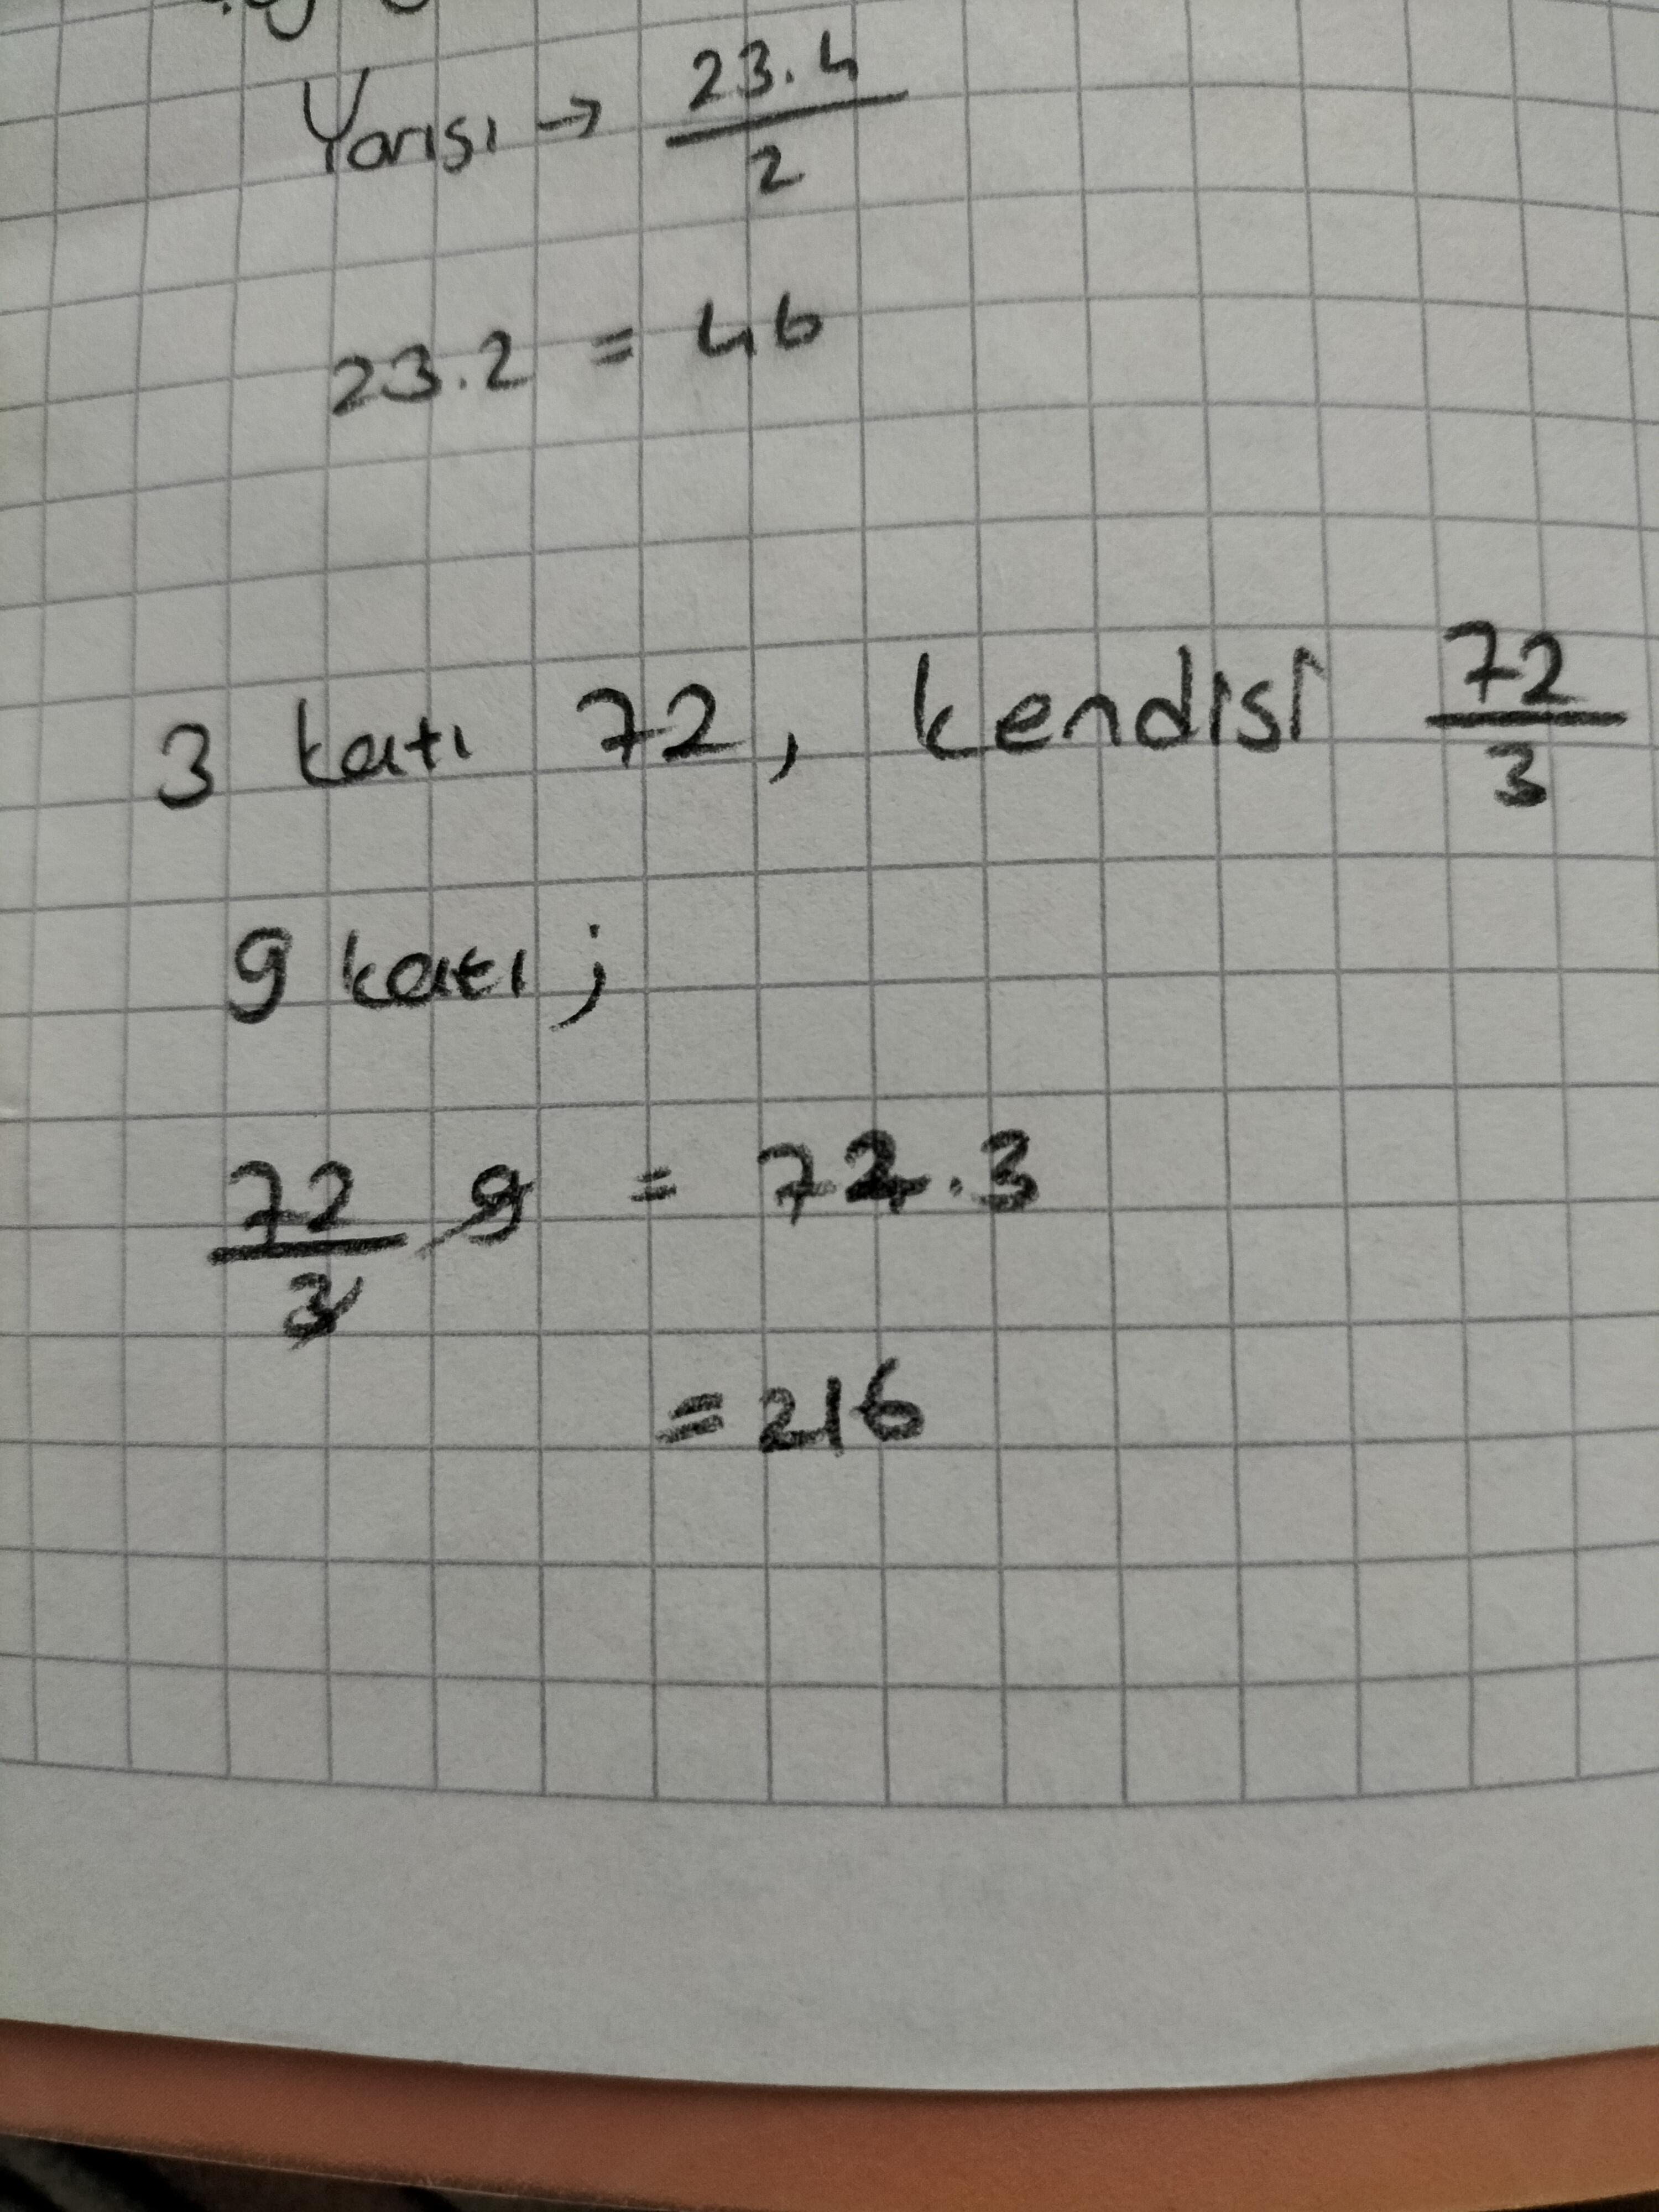 Yarısı → 23.4/2
23.2 = 46
3 katı 72, kendisi 72/3
9 katı;
72/3 9 = 72.3
= 216